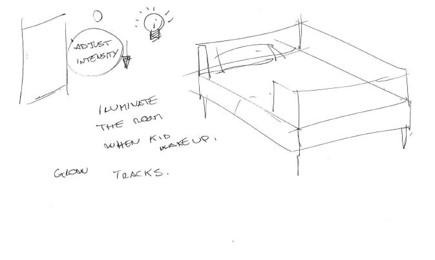 ADJUST
INTENSITY
ILUMINATE
THE ROOM
WHEN KID
WAKE UP.
GLOW TRACKS.